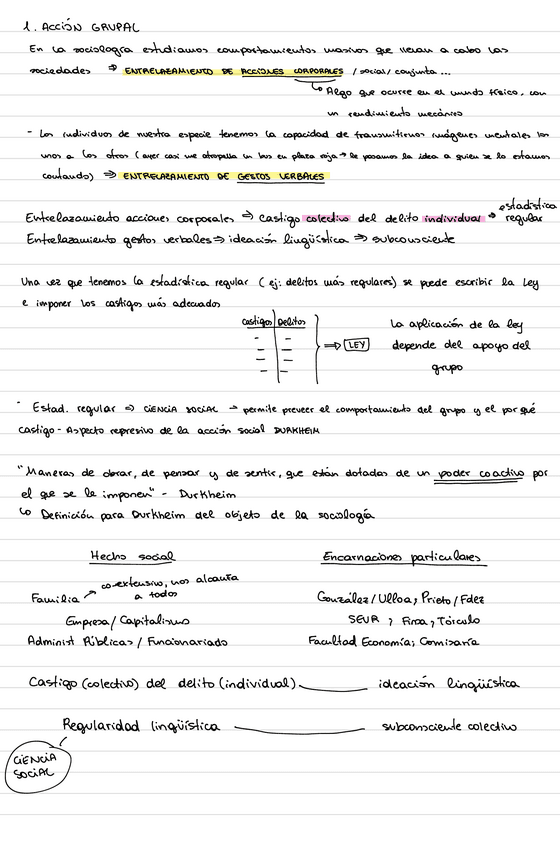 1. ACCIÓN GRUPAL
En la sociología estudiamos comportamientos masivos que llevan a cabo las
sociedades ⇒ ENTRELAZAMIENTO DE ACCIONES CORPORALES / social / conjunta ...
↳ Algo que ocurre en el mundo físico, con
un rendimiento mecánico
- Los individuos de nuestra especie tenemos la capacidad de transmitirnos imágenes mentales los
unos a los otros (ayer casi me atropella un bus en plaza roja → le pasamos la idea a quien se lo estamos
contando) ⇒ ENTRELAZAMIENTO DE GESTOS VERBALES
Entrelazamiento acciones corporales ⇒ castigo colectivo del delito individual → estadística regular
Entrelazamiento gestos verbales ⇒ ideación lingüística ⇒ subconsciente
Una vez que tenemos la estadística regular (ej: delitos más regulares) se puede escribir la Ley
e imponer los castigos más adecuados
Castigos | Delitos
⇒ LEY
La aplicación de la ley
depende del apoyo del
grupo
- Estad. regular ⇒ CIENCIA SOCIAL → permite preveer el comportamiento del grupo y el por qué
castigo - Aspecto represivo de la acción social DURKHEIM
"Maneras de obrar, de pensar y de sentir, que están dotadas de un poder coactivo por
el que se le imponen" - Durkheim
↳ Definición para Durkheim del objeto de la sociología
Hecho social Encarnaciones particulares
Familia ↗ co-extensivo, nos alcanza a todos González / Ulloa; Prieto / Fdez
Empresa / Capitalismo SEUR ; Finsa; Tórculo
Administ Públicas / Funcionariado Facultad Economía; Comisaría
Castigo (colectivo) del delito (individual) ideación lingüística
Regularidad lingüística subconsciente colectivo
CIENCIA
SOCIAL